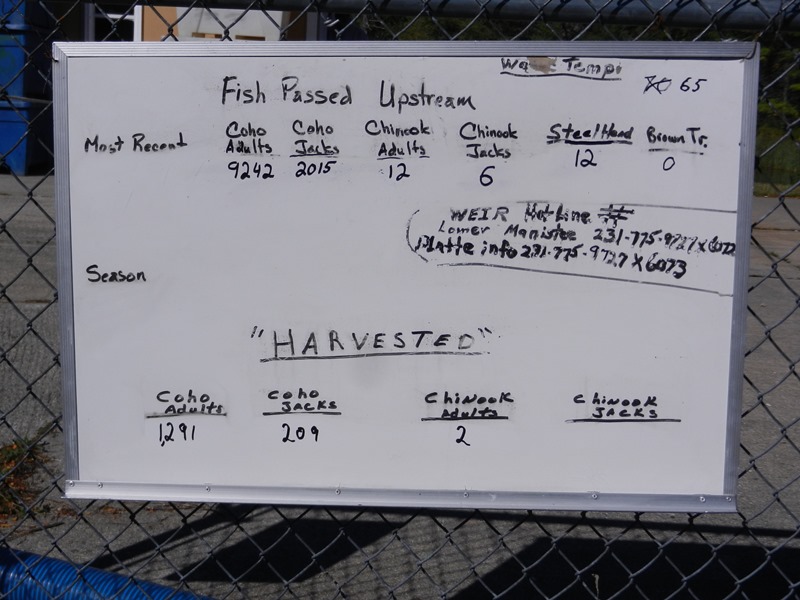 Temp:
65
Fish Passed Upstream
Most Recent
Coho Adults 9242
Coho Jacks 2015
Chinook Adults 12
Chinook Jacks 6
SteelHead 12
Brown Tr. 0
WEIR HotLine #
Lower Manistee 231-775-9727 x 6072
Platte info 231-775-9727 x 6073
Season
"HARVESTED"
Coho Adults 1,291
Coho JACKS 209
CHiNooK Adults 2
CHiNooK JACKS